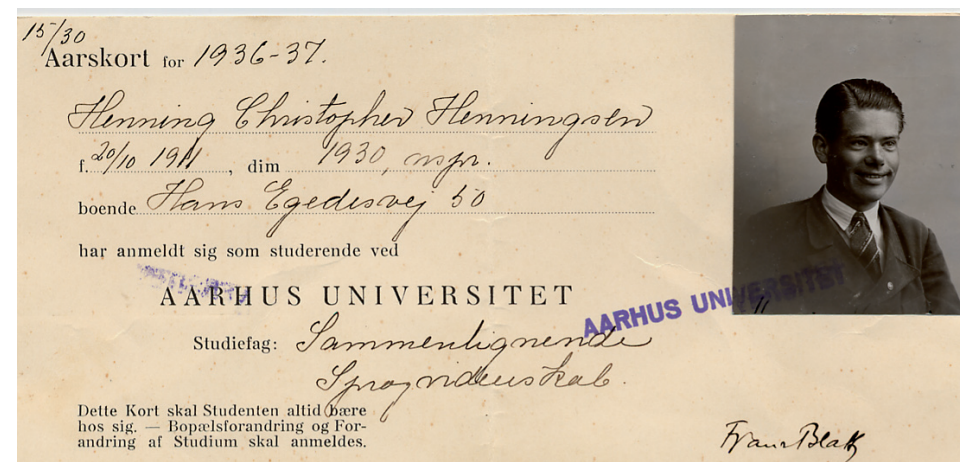 15/30
Aarskort for 1936-37.
Henning Christopher Henningsen
f. 20/10 1911, dim 1930, nspr.
boende Hans Egedesvej 50
har anmeldt sig som studerende ved
AARHUS UNIVERSITET
AARHUS UNIVERSITET
Studiefag: Sammenlignende
Sprogvidenskab.
Dette Kort skal Studenten altid bære
hos sig. — Bopælsforandring og For-
andring af Studium skal anmeldes.
Franz Blatt